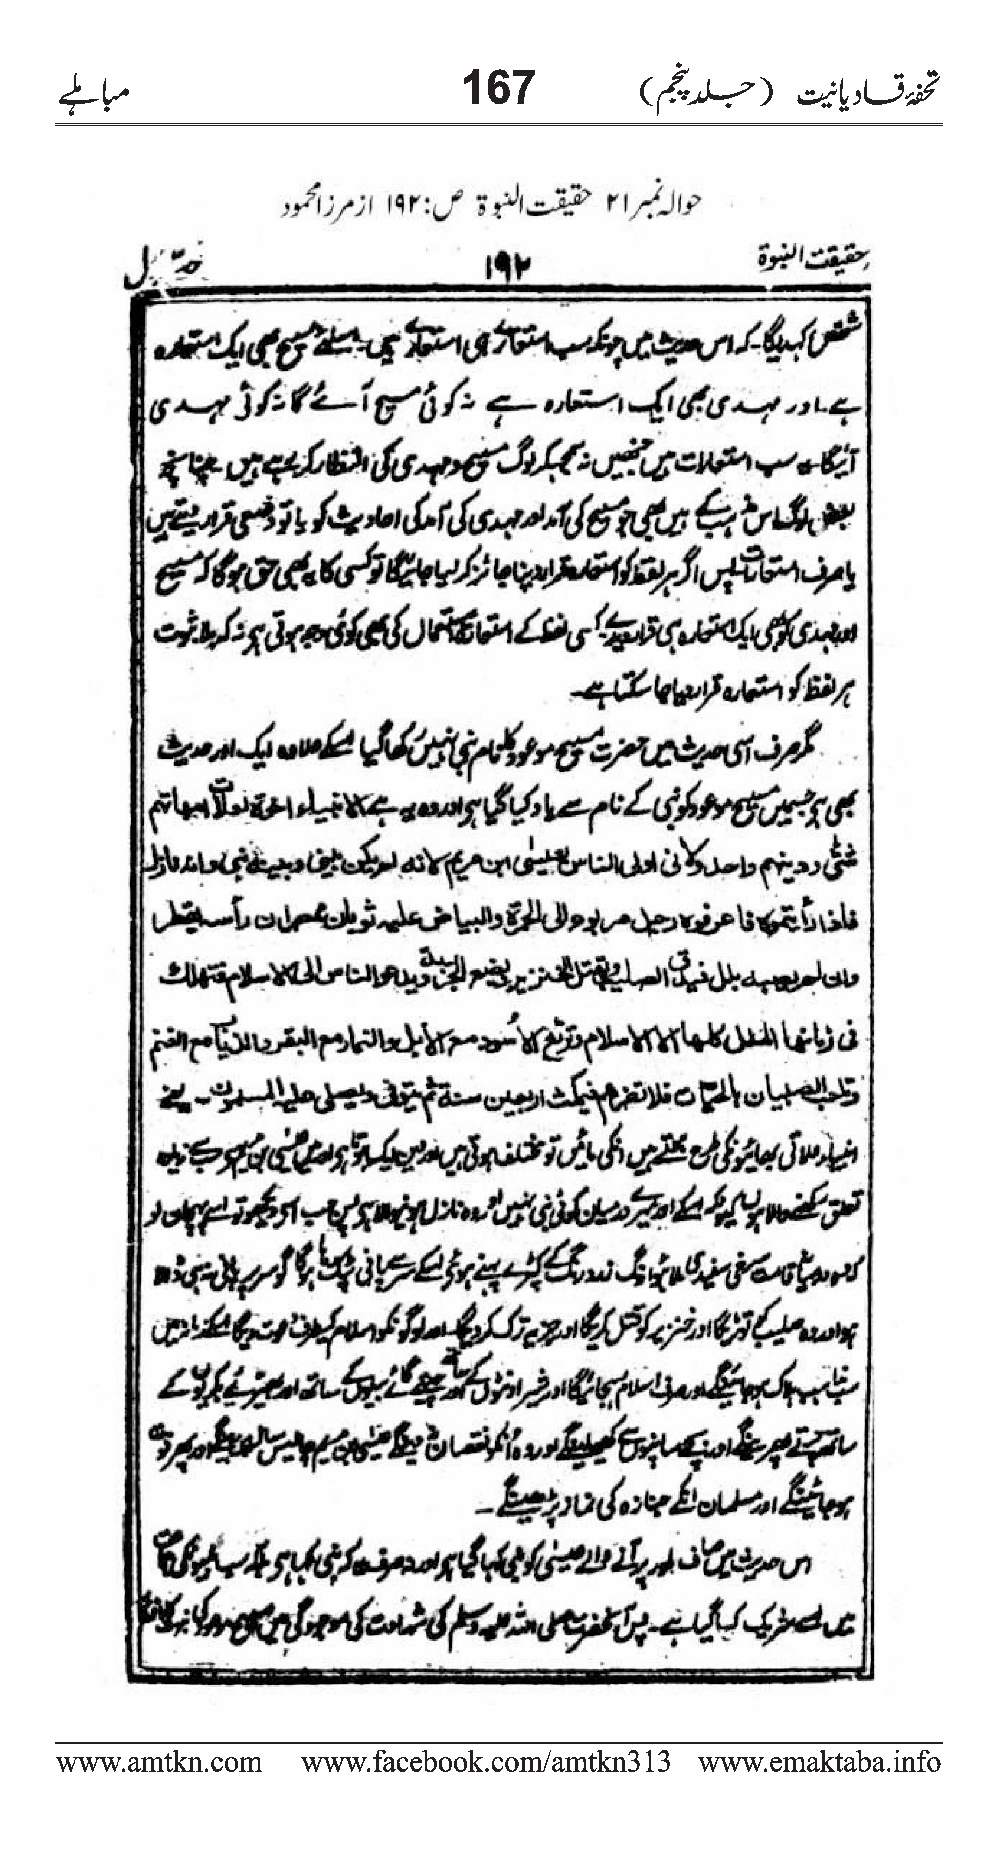 تحفۂ قادیانیت (جلد پنجم) 167 مباہلے
حوالہ نمبر ۲۱ حقیقت النبوۃ ص: ۱۹۲ از مرزا محمود
حقیقت النبوۃ ۱۹۲
شخص کہدیگا۔ کہ اس حدیث میں چونکہ سب استعارے ہی استعارے ہیں۔ اسلئے مسیح بھی ایک استعارہ
ہے۔ اور مہدی بھی ایک استعارہ ہے نہ کوئی مسیح آئے گا نہ کوئی مہدی
آئیگا۔ یہ سب استعارات ہیں جنھیں نہ سمجھ کر لوگ مسیح و مہدی کی انتظار کر رہے ہیں۔ چنانچہ
بعض لوگ اس مذہب کے ہیں بھی جو مسیح کی آمد اور مہدی کی آمد کی احادیث کو یا تو وضعی قرار دیتے ہیں
یا صرف استعارات پس اگر ہر لفظ کو استعارہ قرار دینا جائز کر لیا جائیگا تو کسی کا یہ بھی حق ہوگا کہ مسیح
اور مہدی کو بھی ایک استعارہ ہی قرار دیدے کسی لفظ کے استعارۃً استعمال کی بھی کوئی وجہ ہوتی ہے نہ کہ بلا ثبوت
ہر لفظ کو استعارہ قرار دیا جا سکتا ہے۔
مگر صرف اسی حدیث میں حضرت مسیح موعود کا نام نبی نہیں رکھا گیا اسکے علاوہ ایک اور حدیث
بھی ہے جسمیں مسیح موعود کو نبی کے نام سے یاد کیا گیا ہے اور وہ یہ ہے الانبیاء اخوۃ لعلات امہاتہم
شتّٰی و دینہم واحد و انی اولی الناس بعیسی ابن مریم لانہ لم یکن بینی و بینہ نبی و انہ نازل
فاذا رأیتموہ فاعرفوہ رجل مربوع الی الحمرۃ والبیاض علیہ ثوبان ممصران رأسہ یقطر
وان لم یصبہ بلل فیدق الصلیب ویقتل الخنزیر ویضع الجزیۃ ویدعو الناس الی الاسلام فتہلک
فی زمانہ الملل کلہا الا الاسلام وترتع الاسود مع الابل والنمار مع البقر والذئاب مع الغنم
وتلعب الصبیان بالحیات فلا تضرہم فیمکث اربعین سنۃ ثم یتوفی ویصلی علیہ المسلمون۔ یعنے
انبیاء علاتی بھائیوں کی طرح ہوتے ہیں انکی مائیں تو مختلف ہوتی ہیں اور دین ایک ہوتا ہے اور میں عیسیٰ بن مریم سے سب سے زیادہ
تعلق رکھنے والا ہوں کیونکہ اسکے اور میرے درمیان کوئی نبی نہیں اور وہ نازل ہونیوالا ہے پس جب اسے دیکھو تو اسے پہچان لو
کہ وہ درمیانہ قامت سرخی سفیدی ملا ہوا رنگ زرد رنگ کے کپڑے پہنے ہوئے اسکے سر سے پانی ٹپک رہا ہوگا گو سر پر پانی نہ ہی ڈالا
ہو اور وہ صلیب کو توڑیگا اور خنزیر کو قتل کریگا اور جزیہ ترک کردیگا اور لوگوں کو اسلام کیطرف دعوت دیگا اسکے زمانہ میں
سب مذاہب ہلاک ہو جائینگے اور صرف اسلام رہجائیگا اور شیر اونٹوں کے ساتھ اور چیتے گائے بیلوں کے ساتھ اور بھیڑیے بکریوں کے
ساتھ چرتے پھرینگے اور بچے سانپوں سے کھیلینگے اور وہ انکو نقصان نہ دینگے عیسیٰ بن مریم چالیس سال رہینگے اور پھر فوت
ہو جائینگے اور مسلمان انکے جنازہ کی نماز پڑھینگے۔
اس حدیث میں صاف طور پر آنے والے عیسیٰ کو نبی کہا گیا ہے اور نہ صرف نبی کہا ہے بلکہ سب نبیوں کی
میں اسے شریک کیا گیا ہے۔ پس آنحضرت صلی اللہ علیہ وسلم کی شہادت کی موجودگی میں مسیح موعود کا نبی
www.amtkn.com www.facebook.com/amtkn313 www.emaktaba.info